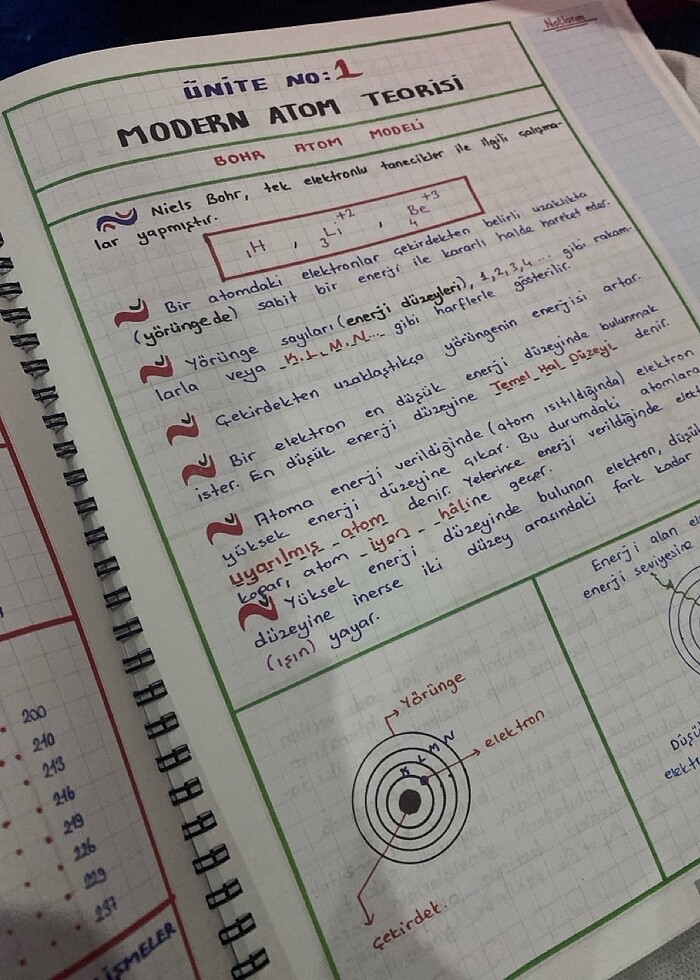 Notlarım
ÜNİTE NO: 1
MODERN ATOM TEORİSİ
BOHR ATOM MODELİ
Niels Bohr, tek elektronlu tanecikler ile ilgili çalışma-
lar yapmıştır.
₁H , ₃Li⁺² , ₄Be⁺³
Bir atomdaki elektronlar çekirdekten belirli uzaklıkta
(yörüngede) sabit bir enerji ile kararlı halde hareket eder.
Yörünge sayıları (enerji düzeyleri), 1,2,3,4 ... gibi rakam-
larla veya K, L, M, N... gibi harflerle gösterilir.
Çekirdekten uzaklaştıkça yörüngenin enerjisi artar.
Bir elektron en düşük enerji düzeyinde bulunmak
ister. En düşük enerji düzeyine Temel Hal Düzeyi denir.
Atoma enerji verildiğinde (atom ısıtıldığında) elektron
yüksek enerji düzeyine çıkar. Bu durumdaki atomlara
uyarılmış atom denir. Yeterince enerji verildiğinde elek
kopar, atom iyon hâline geçer.
Yüksek enerji düzeyinde bulunan elektron, düşük
düzeyine inerse iki düzey arasındaki fark kadar
(ışın) yayar.
Yörünge
K L M N
elektron
çekirdek.
Enerji alan el
enerji seviyesine
Düşü
elektr
200
210
213
216
219
226
229
237
İŞMELER